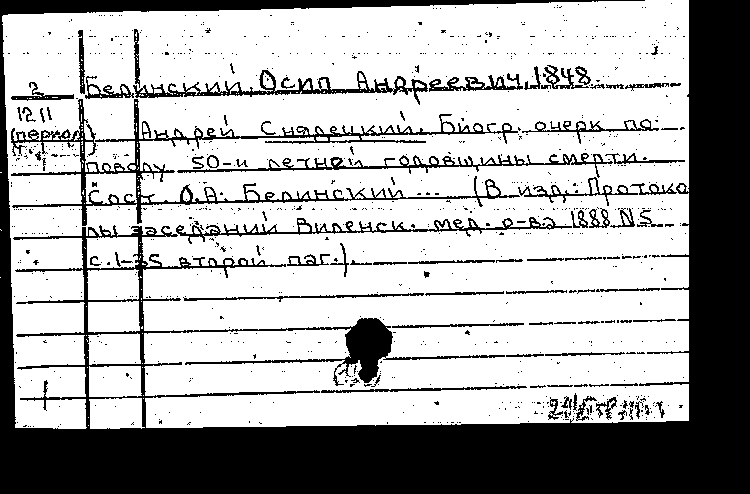 2 Белинский, Осип Андреевич, 1848.
1211
(период) Андрей Снядецкий. Биогр. очерк по
поводу 50-и летней годовщины смерти.
Сост. О.А. Белинский ... (В изд.: Протоко
лы заседаний Виленск. мед. о-ва 1888 N 5
с. 1-35 второй паг.).